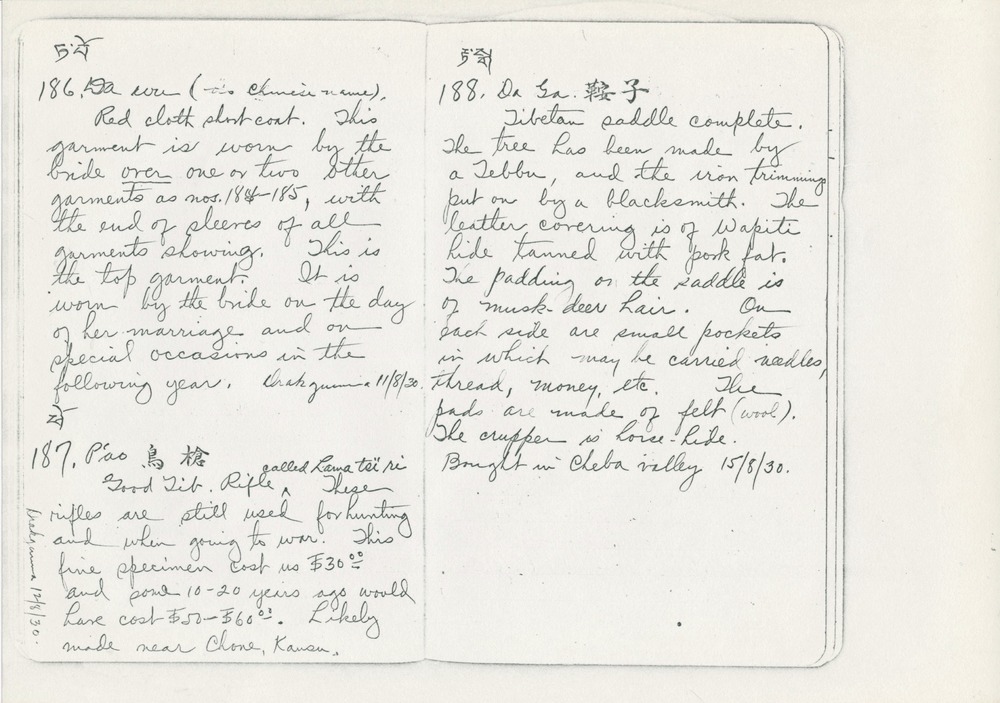 186. Da wu (no Chinese name).
Red cloth short coat. This
garment is worn by the
bride over one or two other
garments as nos. 184-185, with
the end of sleeves of all
garments showing. This is
the top garment. It is
worn by the bride on the day
of her marriage and on
special occasions in the
following year. Drakgumna 11/8/30.
187. P'ao 鳥 槍
called Lama tsü ri
Good Tib. Rifle ‸ These
rifles are still used for hunting
and when going to war. This
fine specimen cost us $30.00
and some 10-20 years ago would
have cost $50-$60.00. Likely
made near Chone, Kansu.
Drakgumna 12/8/30.
188. Da Ga. 鞍子
Tibetan saddle complete.
The tree has been made by
a Tebbu, and the iron trimmings
put on by a blacksmith. The
leather covering is of Wapiti
hide tanned with pork fat.
The padding on the saddle is
of musk-deer hair. On
each side are small pockets
in which may be carried needles,
thread, money, etc. The
pads are made of felt (wool).
The crupper is horse-hide.
Bought in Cheba valley 15/8/30.